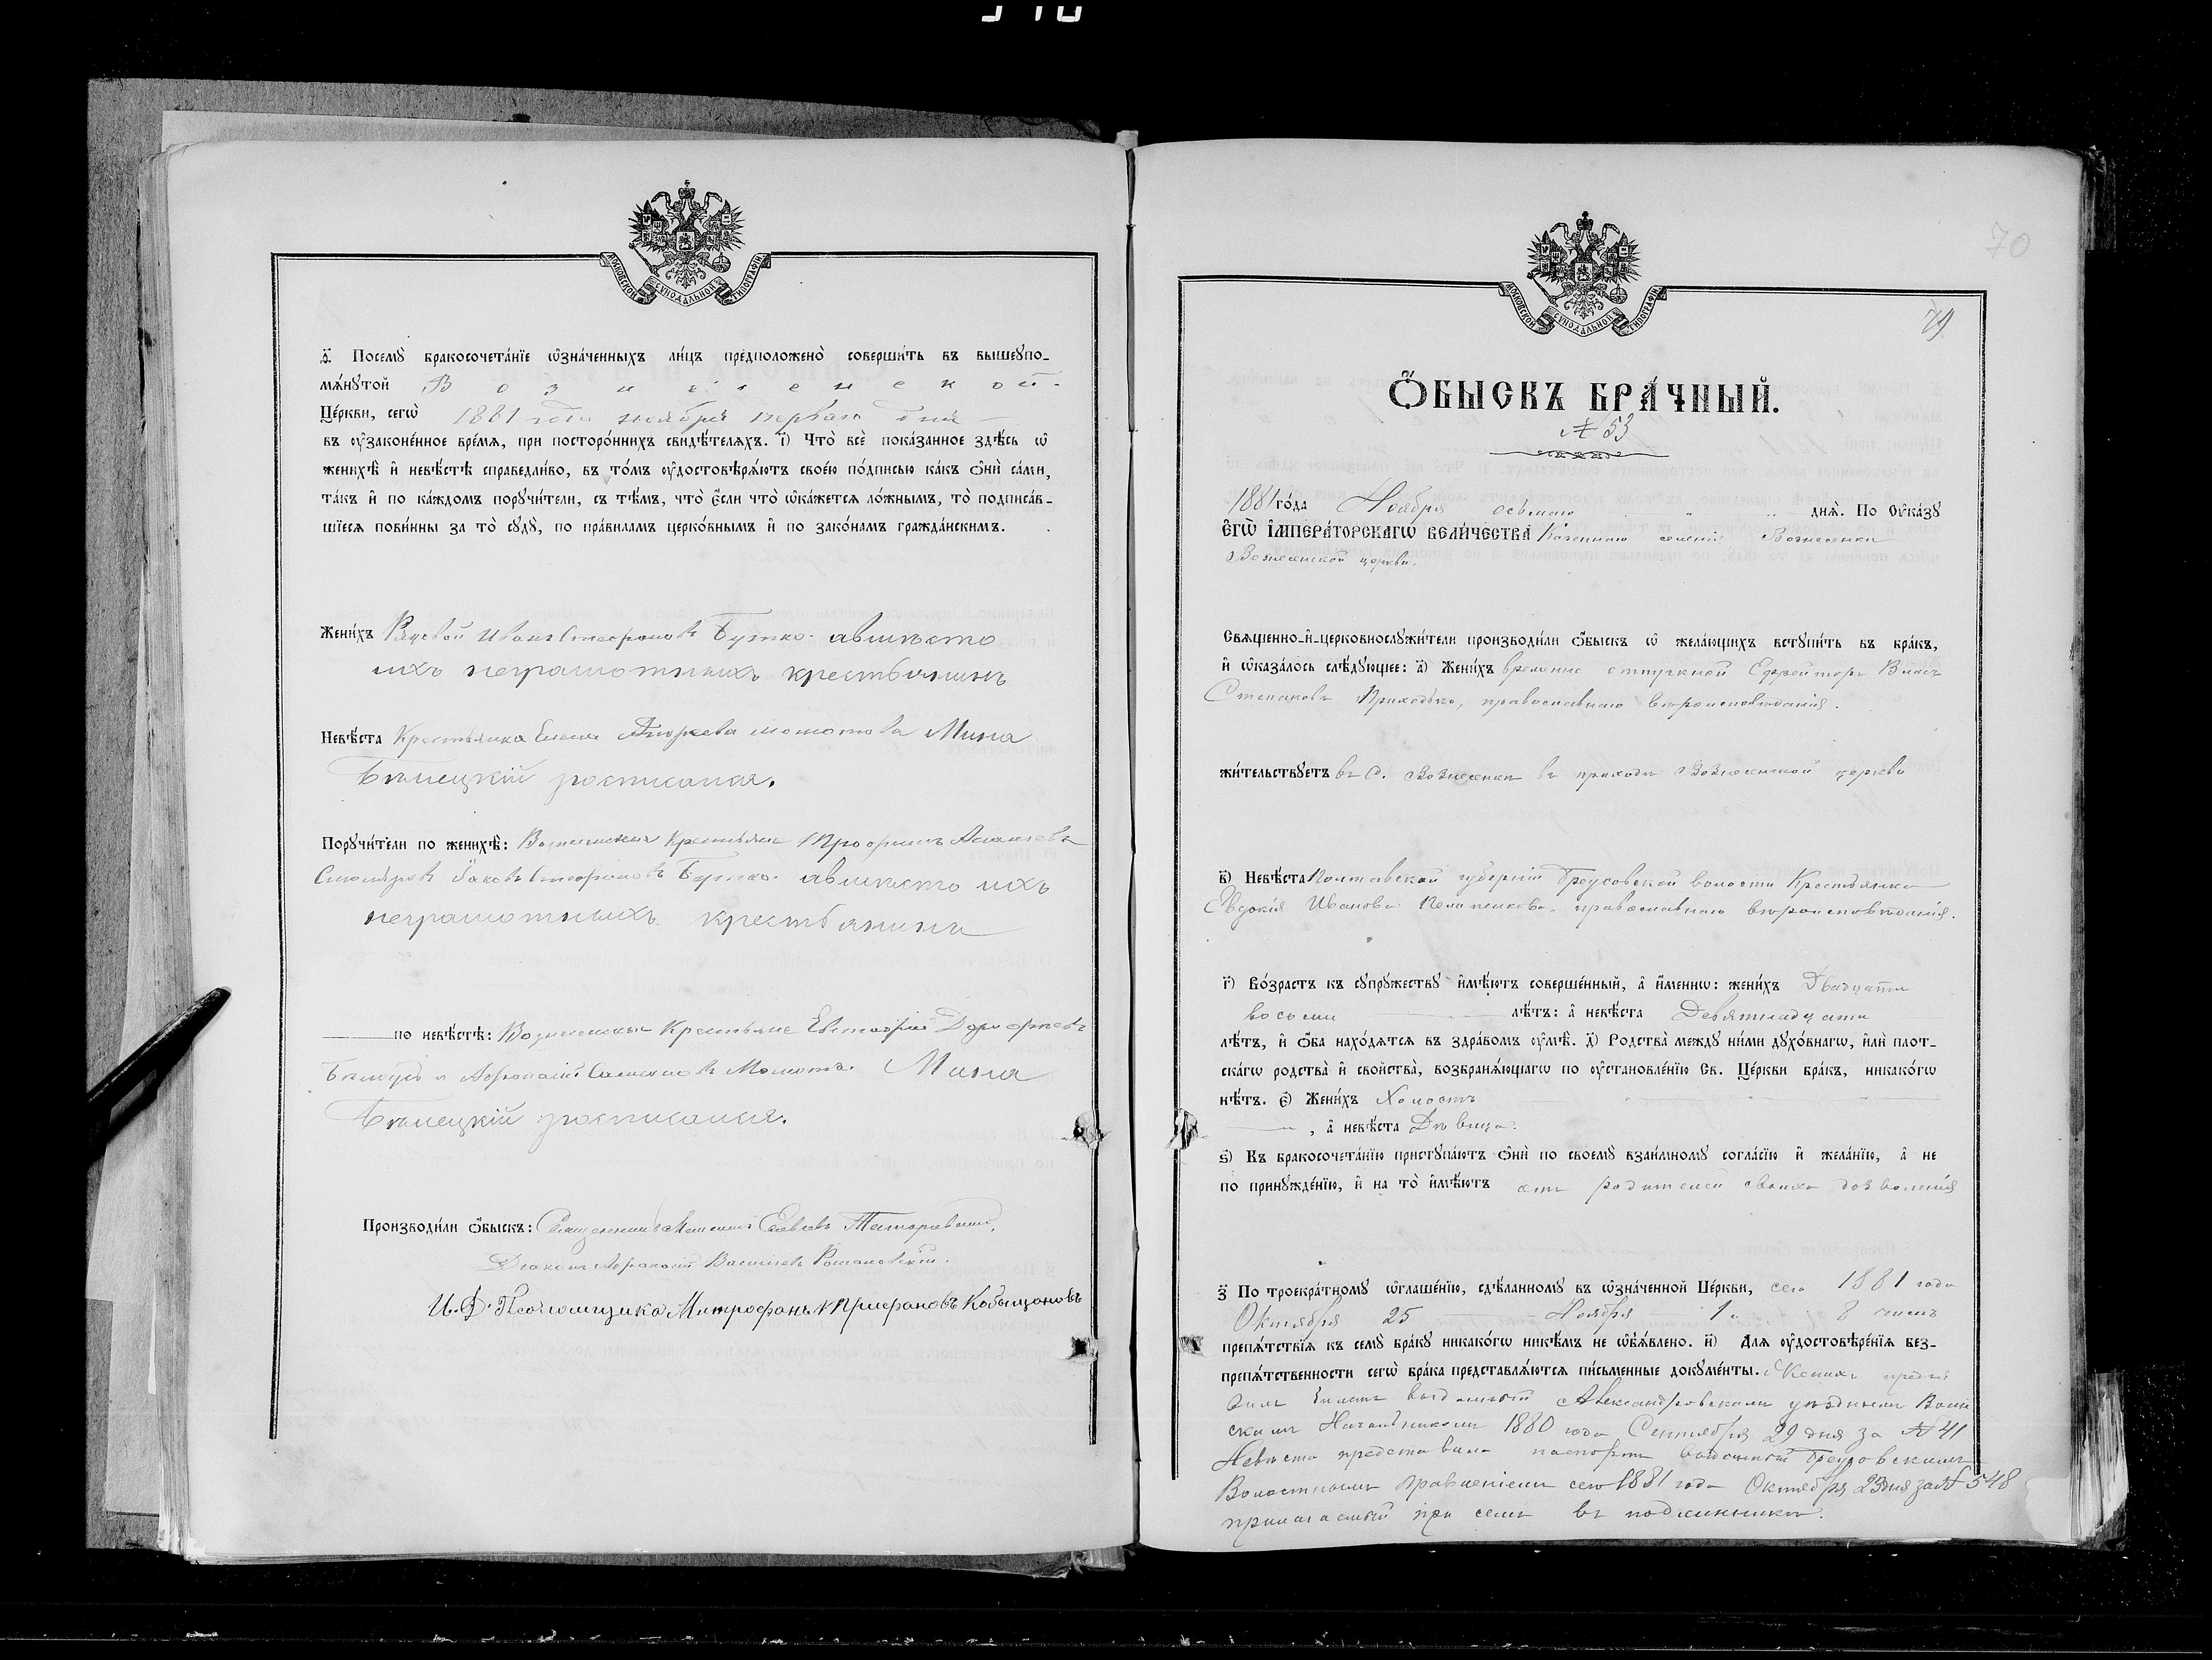 МОСКОВСКОЙ СУНОДАЛЬНОЙ ТИПОГРАФІИ
ѳ҃. Посемꙋ бракосочета́нїе ѡ҆зна́ченныхъ ли́цъ предположено̀ соверши́ть въ вышеꙋпо-
мѧ́нꙋтой Вознесенской
Це́ркви, сегѡ̀ 1881 года ноября перваго дня
въ ᲂу҆законе́нное вре́мѧ, при посторо́ннихъ свидѣ́телѧхъ. і҃) Что̀ всѐ пока́занное здѣ́сь ѡ҆
женихѣ̀ и҆ невѣ́стѣ справедли́во, въ то́мъ ᲂу҆достовѣрѧ́ютъ свое́ю по́дписью ка́къ ѻ҆нѝ са́ми,
та́къ и҆ по ка́ждомъ порꙋчи́тели, съ тѣ́мъ, что̀ є҆́сли что̀ ѡ҆ка́жетсѧ ло́жнымъ, то̀ подписа́в-
шїесѧ пови́нны за то̀ сꙋдꙋ̀, по пра́виламъ церко́внымъ и҆ по зако́намъ гражда́нскимъ.
Жени́хъ Рядовой Иванъ Стефановъ Бутко. авместо
ихъ неграмотныхъ крестьянинъ
Невѣ́ста Крестьянка Елена Мина
Бѣлецкій росписался.
Порꙋчи́тели по женихѣ̀: Вознесенскіе Крестьяне Трофимъ
Яковъ Стефановъ Бутко. авместо ихъ
неграмотныхъ крестьянина
по невѣ́стѣ: Вознесенскіе Крестьяне Евстафій Дорофеевъ
и Афанасій Мина
Бѣлецкій росписался.
Производи́ли ѻ҆́быскъ: Священникъ
Діаконъ Афанасій Васильевъ Романовскій.
И. Д. Псаломщика Митрофанъ Трифановъ Кобыщановъ
70
МОСКОВСКОЙ СУНОДАЛЬНОЙ ТИПОГРАФІИ
79
Ѻ҆́БЫСКЪ БРА́ЧНЫЙ.
№ 53
1881 го́да Ноября осьмаго днѧ̀. По Оу҆ка́зꙋ
Є҆ГѠ̀ И҆МПЕРА́ТОРСКАГѠ ВЕЛИ́ЧЕСТВА Казеннаго селенія Вознесенки
Вознесенской церкви.
Свѧще́нно-и҆-церковнослꙋжи́тели производи́ли ѻ҆́быскъ ѡ҆ жела́ющихъ встꙋпи́ть въ бра́къ,
и҆ ѡ҆каза́лось слѣ́дꙋющее: а҃) Жени́хъ временно отпускной Ефрейторъ Власъ
Степановъ Приходько, православнаго вѣроисповѣданія.
жи́тельствꙋетъ въ С. Вознесенки въ приходѣ Вознесенской церкви
в҃) Невѣ́ста Полтавской губерніи Бреусовской волости Крестьянка
Евдокія Иванова православнаго вѣроисповѣданія.
г҃) Во́зрастъ къ сꙋпрꙋ́жествꙋ и҆мѣ́ютъ соверше́нный, а҆ и҆́меннѡ: жени́хъ Двадцати
восьми лѣ́тъ: а҆ невѣ́ста Девятнадцати
лѣ́тъ, и҆ ѻ҆́ба нахо́дѧтсѧ въ здра́вомъ ᲂу҆мѣ̀. д҃) Родства̀ междꙋ ни́ми дꙋхо́внагѡ, и҆лѝ плот-
ска́гѡ родства̀ и҆ свойства̀, возбранѧ́ющагѡ по ᲂу҆становле́нїю Св. Це́ркви бра́къ, никако́гѡ
нѣ́тъ. є҃) Жени́хъ Холостъ
, а҆ невѣ́ста Дѣвица.
ѕ҃) Къ бракосочета́нїю пристꙋпа́ютъ ѻ҆нѝ по своемꙋ̀ взаи́мномꙋ согла́сїю и҆ жела́нїю, а҆ не
по принꙋжде́нїю, и҆ на то̀ и҆мѣ́ютъ отъ родителей своихъ дозволенія
з҃) По троекра́тномꙋ ѡ҆глаше́нїю, сдѣ́ланномꙋ въ ѡ҆зна́ченной Це́ркви, сего 1881 года
Октября 25 Ноября 1 и 8 чиселъ
препѧ́тствїѧ къ семꙋ̀ бра́кꙋ никако́гѡ никѣ́мъ не ѡ҆бъѧ́влено. и҃) Для ᲂу҆достовѣре́нїѧ без-
препѧ́тственности сегѡ̀ бра́ка представлѧ́ютсѧ пи́сьменные докꙋме́нты. Женихъ предъя
вилъ билетъ выданный Александровскимъ уѣзднымъ Воин
скимъ Начальникомъ 1880 года Сентября 29 дня за № 41
Невѣста представила паспортъ выданный Бреусовскимъ
Волостнымъ Правленіемъ сего 1881 года Октября 23 дня за № 548
прилагаемый при семъ въ подлинникѣ.